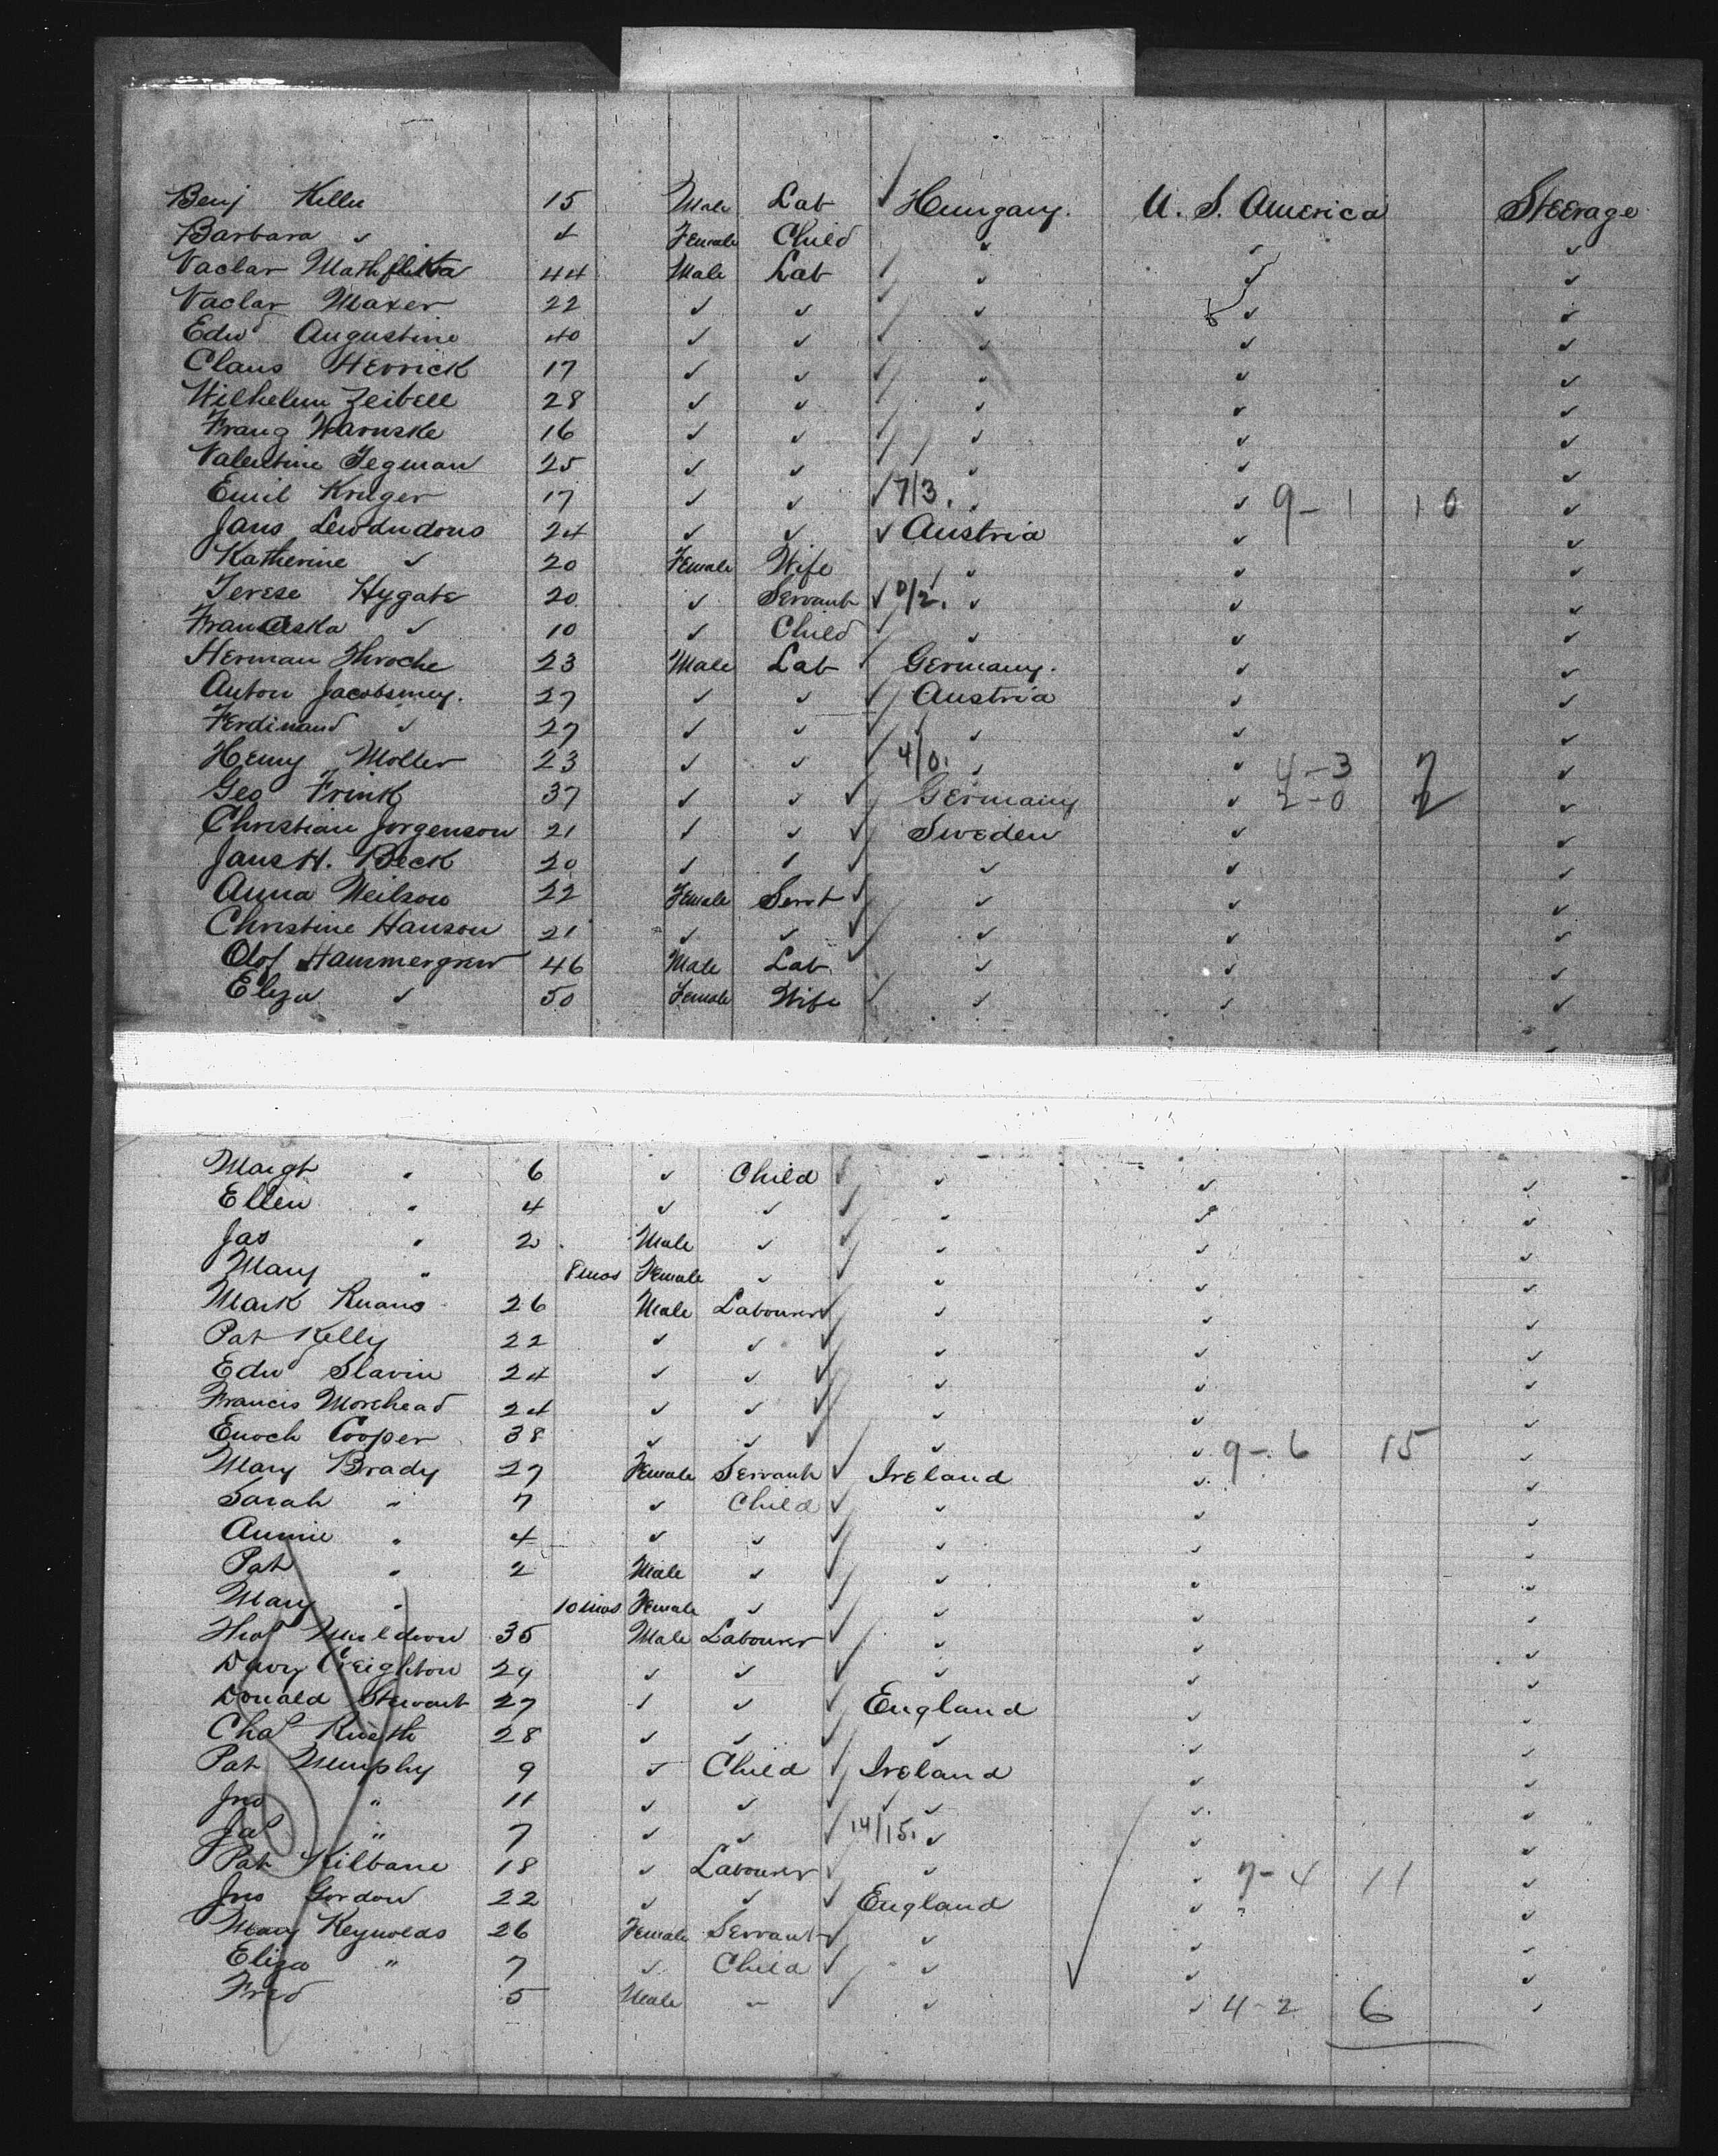 Benj Keller 15 Male Lab ✓ Hungary. U. S. America Steerage
Barbara ✓ 4 Female Child ✓ ✓ ✓
Vaclav 44 Male Lab ✓ ✓ ✓
Vaclav Maxer 22 ✓ ✓ ✓ ✓ ✓
Edwd Augustine 40 ✓ ✓ ✓ ✓ ✓
Claus Herrick 17 ✓ ✓ ✓ ✓ ✓
Wilhelm Zeibell 28 ✓ ✓ ✓ ✓ ✓
Franz Warnske 16 ✓ ✓ ✓ ✓ ✓
Valentine Tegman 25 ✓ ✓ ✓ ✓ ✓
Emil Kruger 17 ✓ ✓ ✓ 7/3. ✓ 9-1 10 ✓
Jans 24 ✓ ✓ ✓ Austria ✓ ✓
Katherine ✓ 20 Female Wife ✓ ✓ ✓
Terese Hygate 20 ✓ Servant ✓ 0/2. ✓ ✓ ✓
Franciska ✓ 10 ✓ Child ✓ ✓ ✓
Herman Throche 23 Male Lab Germany. ✓ ✓
Anton Jacobsmey. 27 ✓ ✓ ✓ Austria ✓ ✓
Ferdinand ✓ 27 ✓ ✓ ✓ ✓ ✓
Henry Moller 23 ✓ ✓ 4/0. ✓ ✓ 4-3 7 ✓
Geo Frink 37 ✓ ✓ ✓ Germany ✓ 2-0 2 ✓
Christian Jorgenson 21 ✓ ✓ ✓ Sweden ✓ ✓
Jans H. Beck 20 ✓ ✓ ✓ ✓ ✓ ✓
Anna Neilson 22 Female Servt ✓ ✓ ✓ ✓
Christine Hanson 21 ✓ ✓ ✓ ✓ ✓ ✓
Olof Hammergren 46 Male Lab ✓ ✓ ✓ ✓
Eliza ✓ 50 Female Wife ✓ ✓ ✓ ✓
Margt " 6 ✓ Child ✓ ✓ ✓ ✓
Ellen " 4 ✓ ✓ ✓ ✓ ✓ ✓
Jas " 2 Male ✓ ✓ ✓ ✓ ✓
Mary " 8 mos Female ✓ ✓ ✓ ✓ ✓
Mark Ruans 26 Male Labourer ✓ ✓ ✓ ✓
Pat Kelly 22 ✓ ✓ ✓ ✓ ✓ ✓
Edwd Slavin 24 ✓ ✓ ✓ ✓ ✓ ✓
Francis Morehead 24 ✓ ✓ ✓ ✓ ✓ ✓
Enoch Cooper 38 ✓ ✓ ✓ ✓ ✓ 9-6 15 ✓
Mary Brady 27 Female Servant ✓ Ireland ✓ ✓
Sarah " 7 ✓ Child ✓ ✓ ✓ ✓
Annie " 4 ✓ ✓ ✓ ✓ ✓ ✓
Pat " 2 Male ✓ ✓ ✓ ✓ ✓
Mary " 10 mos Female ✓ ✓ ✓ ✓ ✓
Thos Muldoon 35 Male Labourer ✓ ✓ ✓ ✓
Davy Creighton 29 ✓ ✓ ✓ ✓ ✓ ✓
Donald Stewart 27 ✓ ✓ ✓ England ✓ ✓
Chas 28 ✓ ✓ ✓ ✓ ✓ ✓
Pat Murphy 9 ✓ Child ✓ Ireland ✓ ✓
Jno " 11 ✓ ✓ ✓ ✓ ✓ ✓ ✓
Jas " 7 ✓ ✓ ✓ 14/15. ✓ ✓ ✓
Pat Kilbane 18 ✓ Labourer ✓ ✓ ✓ 7-4 11 ✓
Jno Gordon 22 ✓ ✓ ✓ England ✓ ✓
Mary Reynolds 26 Female Servant ✓ ✓ ✓ ✓
Eliza " 7 ✓ Child ✓ ✓ ✓ ✓
Fred 5 Male " ✓ ✓ ✓ 4-2 6 ✓